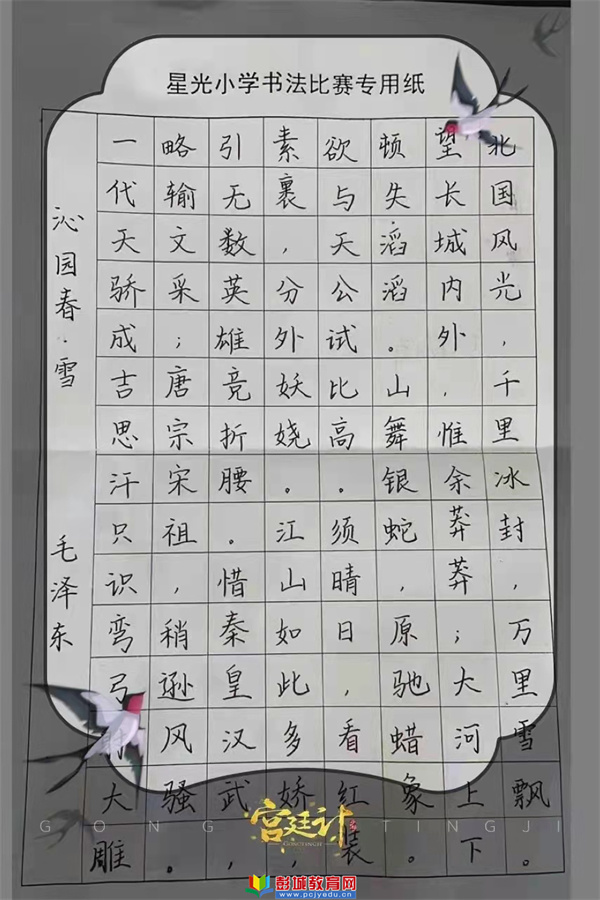 星光小学书法比赛专用纸
北国风光，千里冰封，万里雪飘。
望长城内外，惟余莽莽；大河上下
顿失滔滔。山舞银蛇，原驰蜡象。
欲与天公试比高。须晴日，看红装
素裹，分外妖娆。江山如此多娇，
引无数英雄竞折腰。惜秦皇汉武，
略输文采；唐宗宋祖，稍逊风骚。
一代天骄成吉思汗只识弯弓射大雕
沁园春·雪
毛泽东
宫廷计
GONGTINGJI
彭城教育网
www.pcjyedu.cn